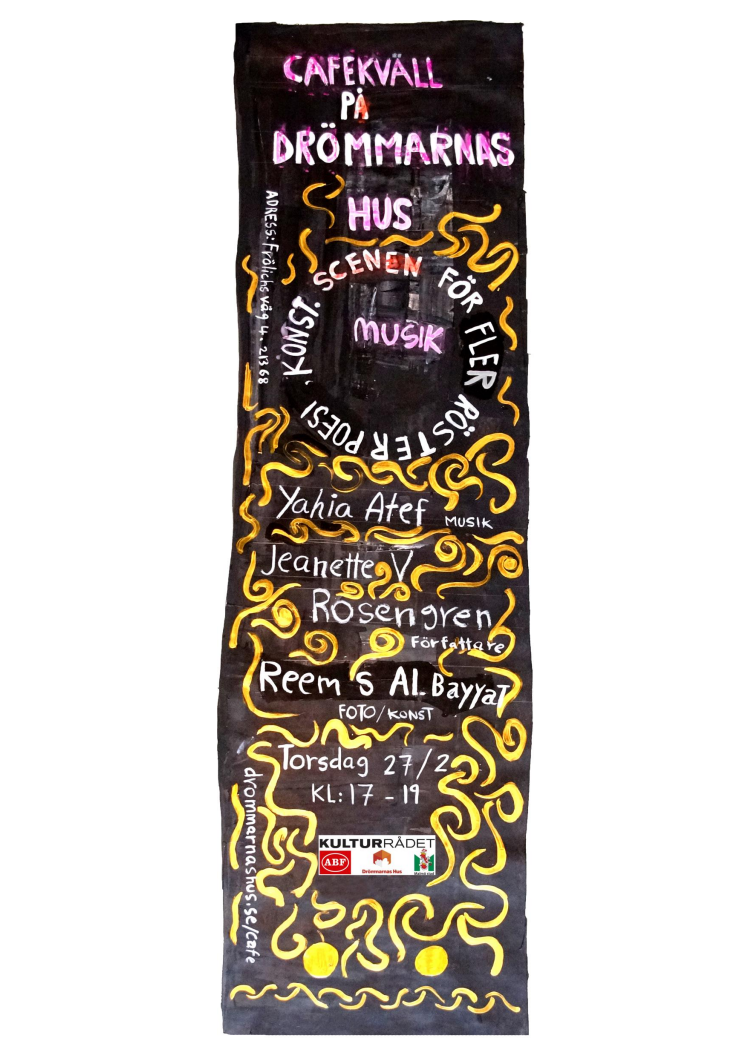 CAFEKVÄLL
PÅ
DRÖMMARNAS
HUS
ADRESS: Frölichs väg 4. 213 68
SCENEN FÖR FLER RÖSTER POESI, KONST.
MUSIK
Yahia Atef MUSIK
Jeanette V
Rosengren
Författare
Reem S AL Bayyat
FOTO/KONST
Torsdag 27/2
KL: 17 - 19
drommarnashus.se/cafe
KULTURRÅDET
ABF
Drömmarnas Hus